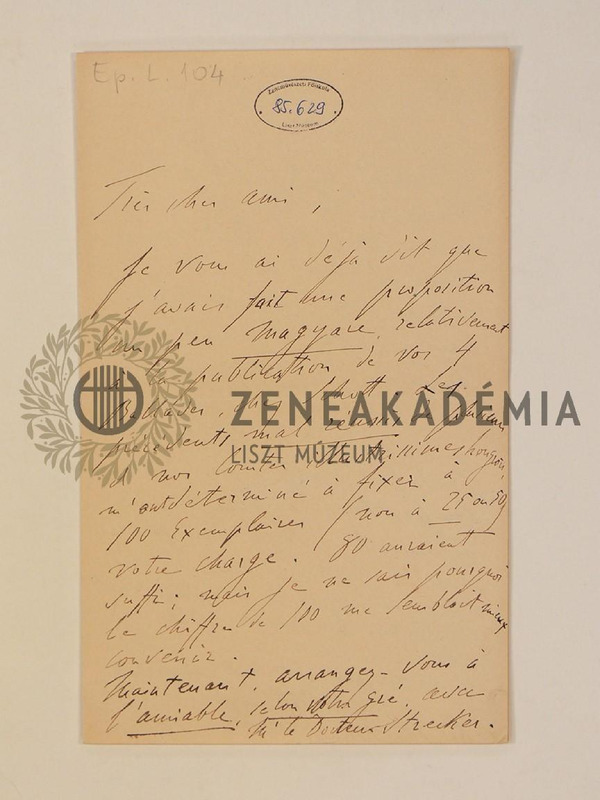 Ep. L. 104
Zeneművészeti Főiskola
85.629
Liszt Múzeum
Très cher ami,
Je vous ai déjà dit que
j'avais fait une proposition
un peu magyare, relativement
à la publication de vos 4
Ballades, chez Schott. Les
précédents mal réussis
et nos comtes
m'ont déterminé à fixer à
100 Exemplaires (non à 25 ou 50)
votre charge. 80 auraient
suffi; mais je ne sais pourquoi
le chiffre de 100 me semblait mieux
convenir.
Maintenant, arrangez-vous à
l'amiable, selon votre gré, avec
Mr le Docteur Strecker.
ZENEAKADÉMIA
LISZT MÚZEUM